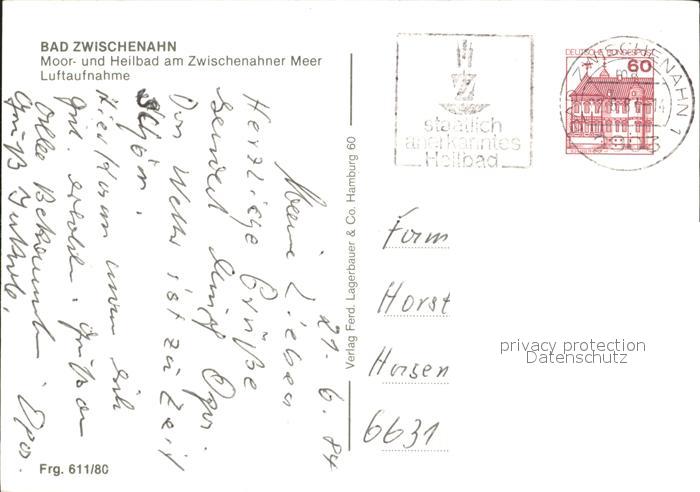 BAD ZWISCHENAHN
Moor- und Heilbad am Zwischenahner Meer
Luftaufnahme
21. 6. 84
Meine Lieben
Herzliche Grüße
sendet Opa.
Das Wetter ist zur Zeit
schön.
Hier kann man sich
gut erholen. Grüßen
alle Bekannten. Opa.
Gruß
Frg. 611/80
Verlag Ferd. Lagerbauer & Co. Hamburg 60
staatlich
anerkanntes
Heilbad
DEUTSCHE BUNDESPOST
60
ZWISCHENAHN 1
2903
Horst
6631
privacy protection
Datenschutz